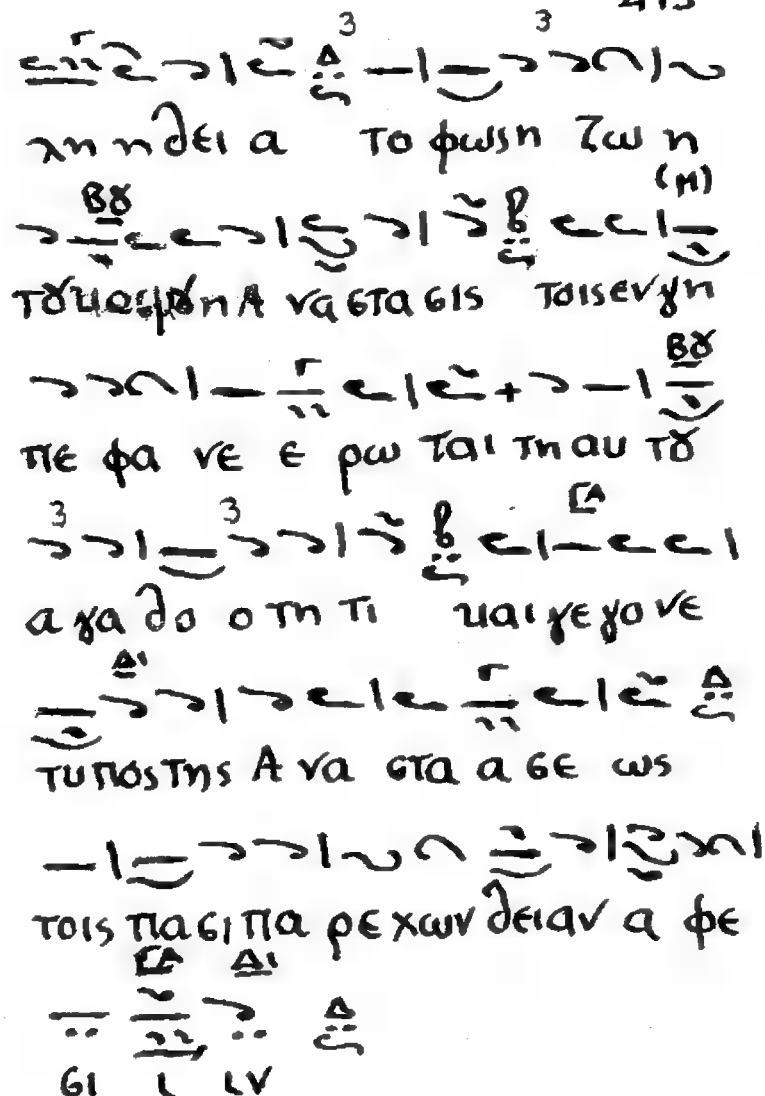 λη ηθει α το φως η ζω η
τȣ κοσμȣ η Α να στα σις τοις εν γη
πε φα νε ε ρω ται τη αυ τȣ
α γα θο ο τη τι και γε γο νε
τυ πος της Α να στα α σε ως
τοις πασι πα ρε χων θειαν α φε
σι ι ιν